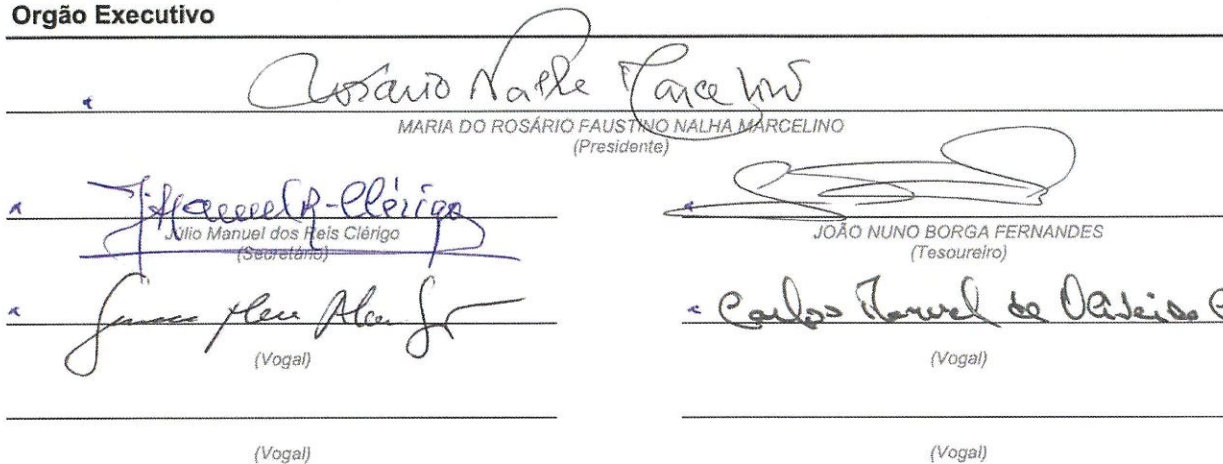 Orgão Executivo
Rosário Nalha Marcelino
MARIA DO ROSÁRIO FAUSTINO NALHA MARCELINO
(Presidente)
J. Manuel R. Clérigo
Júlio Manuel dos Reis Clérigo
(Secretário)
JOÃO NUNO BORGA FERNANDES
(Tesoureiro)
Carlos Manuel de Oliveira
(Vogal)
(Vogal)
(Vogal)
(Vogal)